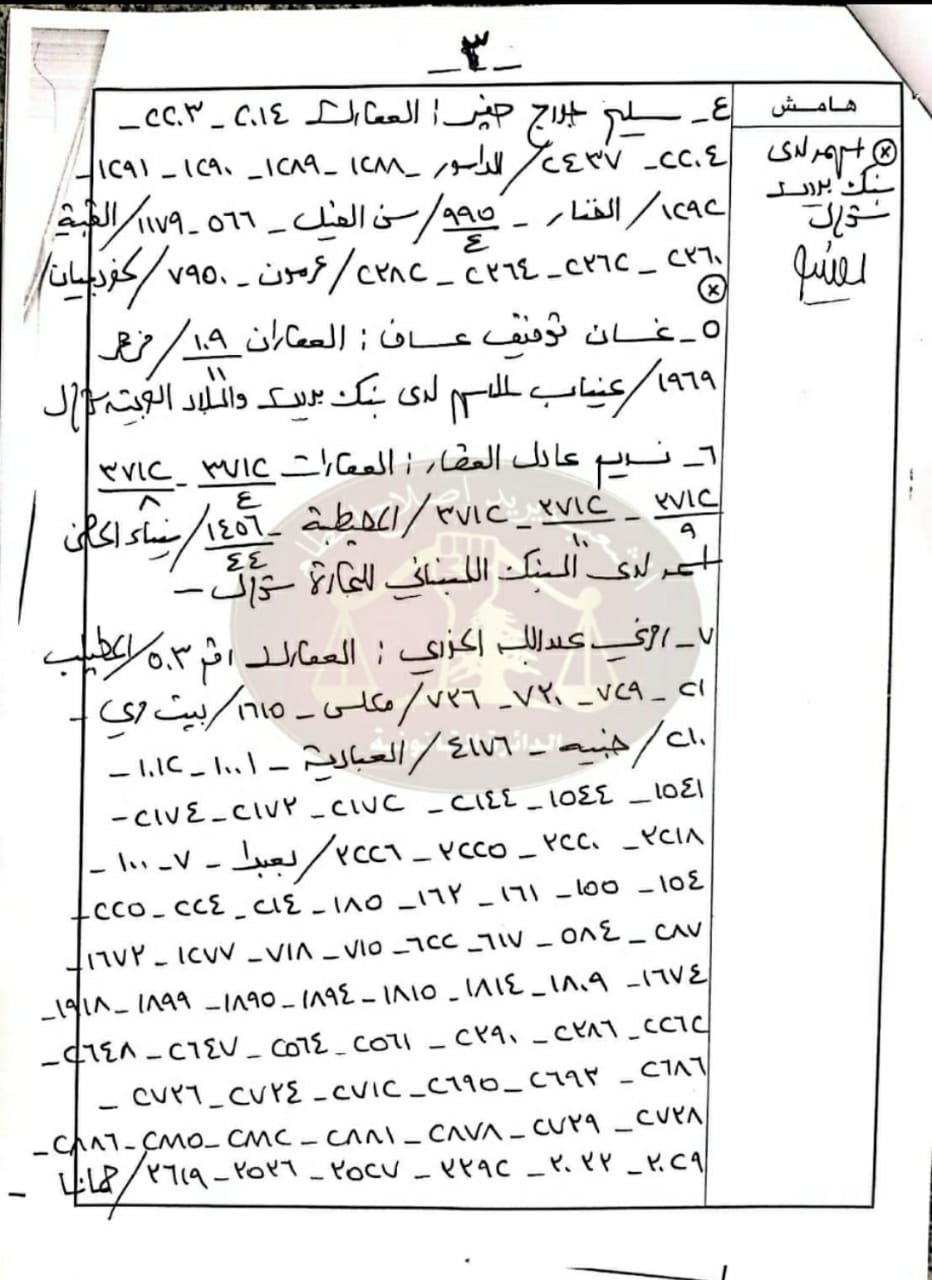 ـ ٣ ـ
هامش
⊗ اسهم لدى
بنك بيروت
ش.م.ل
٤ـ سليم جورج صفير: العقارات ٢٠١٤ـ ٢٢٠٣ـ
٢٢٠٤ـ ٢٤٣٧/ الدامور ـ ١٢٨٨ـ ١٢٨٩ـ ١٢٩٠ـ ١٢٩١ـ
١٢٩٢/ الفنار ـ ٩٩٥/٤ / سن الفيل ـ ٥٦٦ـ ١١٧٩/ القبة
٢٣٦٠ـ ٢٣٦٢ـ ٢٣٦٤ـ ٢٣٨٢/ عرمون ـ ٧٩٥٠/ كفردبيان
⊗
٥ـ غسان توفيق عساف: العقاران ١٠٩/١١ /
١٩٦٩/ عيناب لدى بنك بيروت والبلاد العربية ش.م.ل
٦ـ نديم عادل القصار: العقارات ٣٧١٢/٤ ـ ٣٧١٢/٨
٣٧١٢/٩ ـ ٣٧١٢/١٠ ـ ٣٧١٢/ المصيطبة ـ ١٤٥٦/٤٤ / ميناء الحصن
اسهم لدى البنك اللبناني للتجارة ش.م.ل ـ
٧ـ عبدالله : العقارات رقم ٥٠٣/
٢١ـ ٧٢٩ـ ٧٣٠ـ ٧٣٦/ مكلس ـ ١٦١٥/ بيت مري ـ
٢١٠/ ـ ٤١٧٦/ العبادية ـ ١٠٠١ـ ١٠١٢ـ
١٥٤١ـ ١٥٤٤ـ ٢١٤٤ـ ٢١٧٢ـ ٢١٧٣ـ ٢١٧٤ـ
٣٢١٨ـ ٣٢٢٠ـ ٣٢٢٥ـ ٣٢٢٦/ بعبدا ـ ٧ـ ١٠٠ـ
١٥٤ـ ١٥٥ـ ١٦١ـ ١٦٢ـ ١٨٥ـ ٢١٤ـ ٢٢٤ـ ٢٢٥ـ
٢٨٧ـ ٥٨٤ـ ٦١٧ـ ٦٢٢ـ ٧١٥ـ ٧١٨ـ ١٢٧٧ـ ١٦٧٣ـ
١٦٧٤ـ ١٨٠٩ـ ١٨١٤ـ ١٨١٥ـ ١٨٩٤ـ ١٨٩٥ـ ١٨٩٩ـ ١٩١٨ـ
٢٢٦٢ـ ٢٢٨٦ـ ٢٢٩٠ـ ٢٥٦١ـ ٢٥٦٤ـ ٢٦٤٧ـ ٢٦٤٨ـ
٢٦٨٦ـ ٢٦٩٣ـ ٢٦٩٥ـ ٢٧١٢ـ ٢٧٢٤ـ ٢٧٢٦ـ
٢٧٢٨ـ ٢٧٢٩ـ ٢٨٧٨ـ ٢٨٨١ـ ٢٨٨٢ـ ٢٨٨٥ـ ٢٨٨٦ـ
٣٠٢٩ـ ٣٠٣٢ـ ٣٣٩٢ـ ٣٥٢٧ـ ٣٥٣٦ـ ٣٦١٩/ حمانا ـ
الشعب يريد اصلاح
الدائرة القانونية